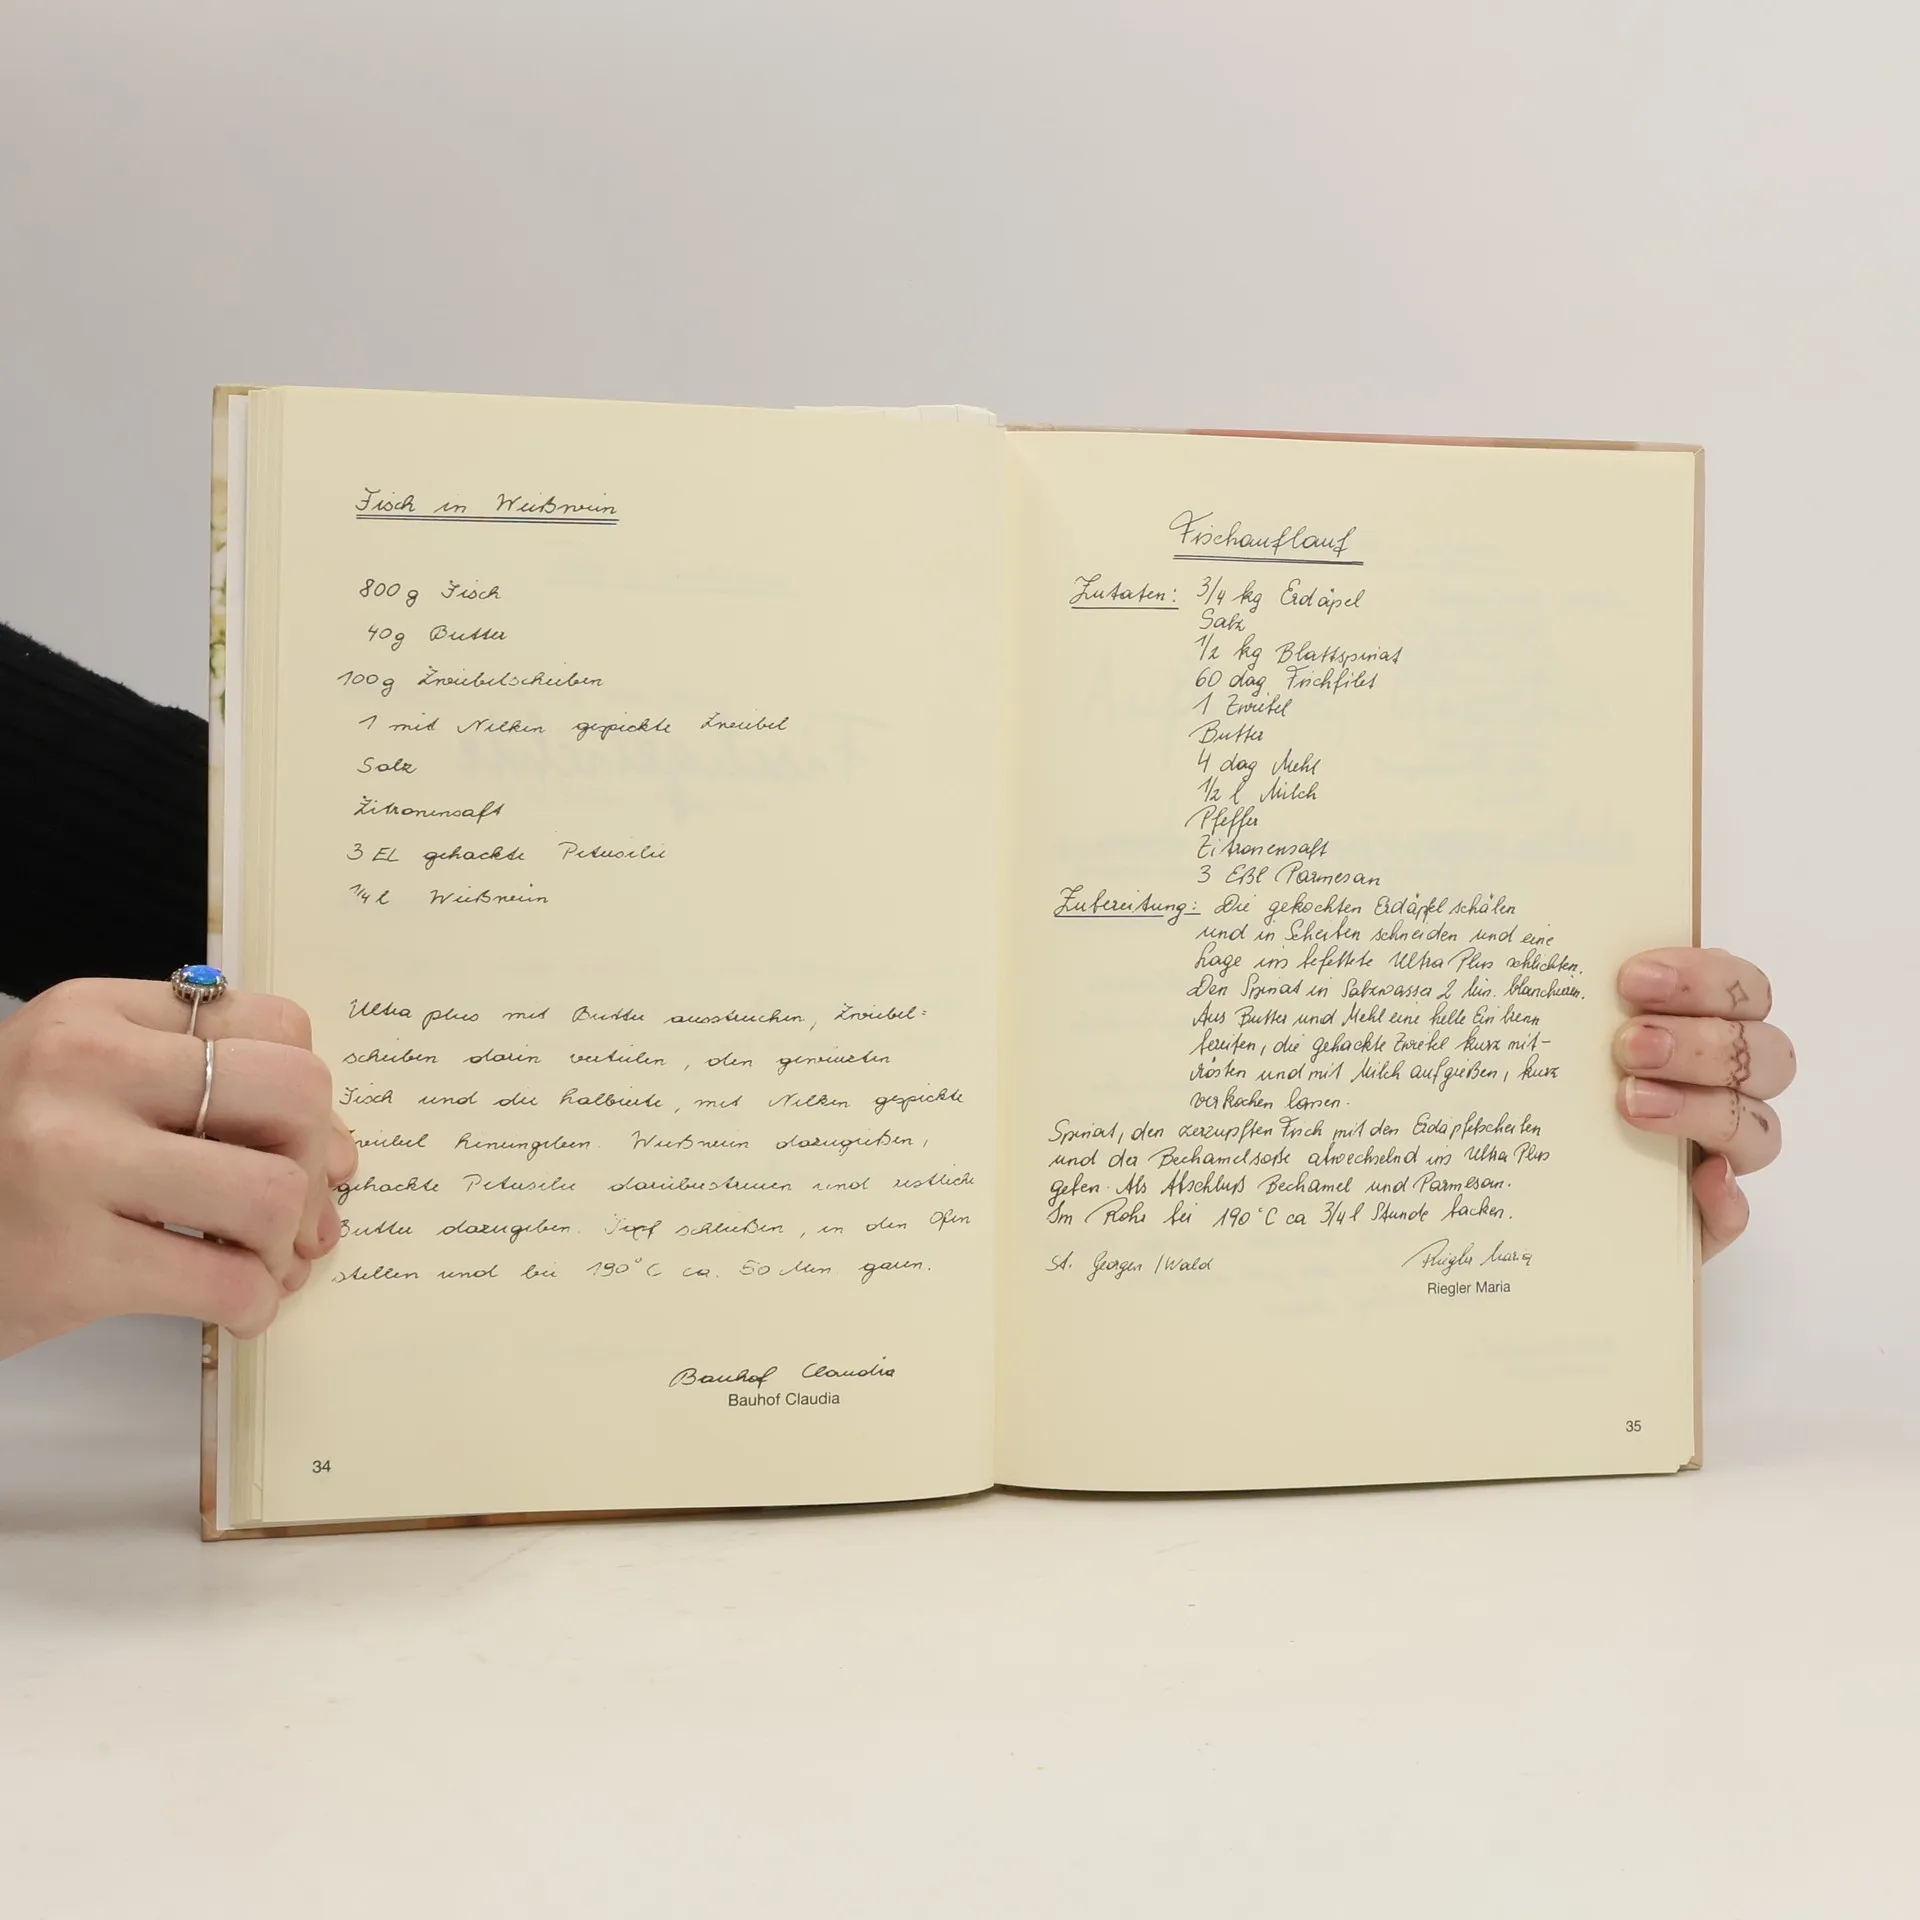 Fisch in Weißwein
800 g Fisch
40g Butter
100g Zwiebelscheiben
1 mit Nelken gespickte Zwiebel
Salz
Zitronensaft
3 EL gehackte Petersilie
1/4 l Weißwein
Ultra plus mit Butter ausstreichen, Zwiebel=
scheiben darin verteilen, den gewürzten
Fisch und die halbierte, mit Nelken gespickte
Zwiebel hineingeben. Weißwein dazugießen,
gehackte Petersilie darüberstreuen und restliche
Butter dazugeben. Topf schließen, in den Ofen
stellen und bei 190°C ca. 50 Min garen.
Bauhof Claudia
Bauhof Claudia
34
Fischauflauf
Zutaten: 3/4 kg Erdäpel
Salz
1/2 kg Blattspinat
60 dag Fischfilet
1 Zwiebel
Butter
4 dag Mehl
1/2 l Milch
Pfeffer
Zitronensaft
3 Eßl Parmesan
Zubereitung: Die gekochten Erdäpfel schälen
und in Scheiben schneiden und eine
Lage ins befettete Ultra Plus schlichten.
Den Spinat in Salzwasser 2 Min. blanchieren.
Aus Butter und Mehl eine helle Einbrenn
bereiten, die gehackte Zwiebel kurz mit-
rösten und mit Milch aufgießen, kurz
verkochen lassen.
Spinat, den zerzupften Fisch mit den Erdäpfelscheiben
und der Bechamelsoße abwechselnd ins Ultra Plus
geben. Als Abschluß Bechamel und Parmesan.
Im Rohr bei 190°C ca 3/4 l Stunde backen.
St. Georgen / Wald
Riegler Maria
Riegler Maria
35